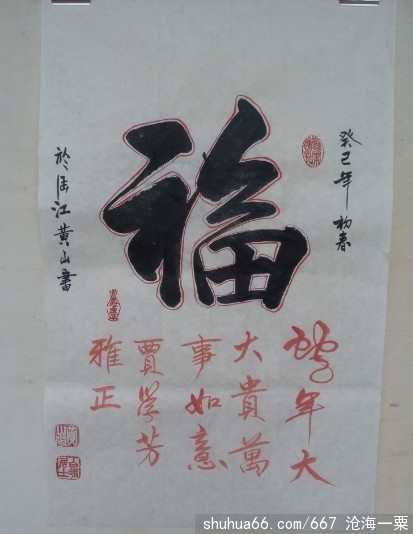 癸巳年初春
福
蛇年大
大貴萬
事如意
賈學芳
雅正
於浦江黃山書
shuhua66.com/667 沧海一粟